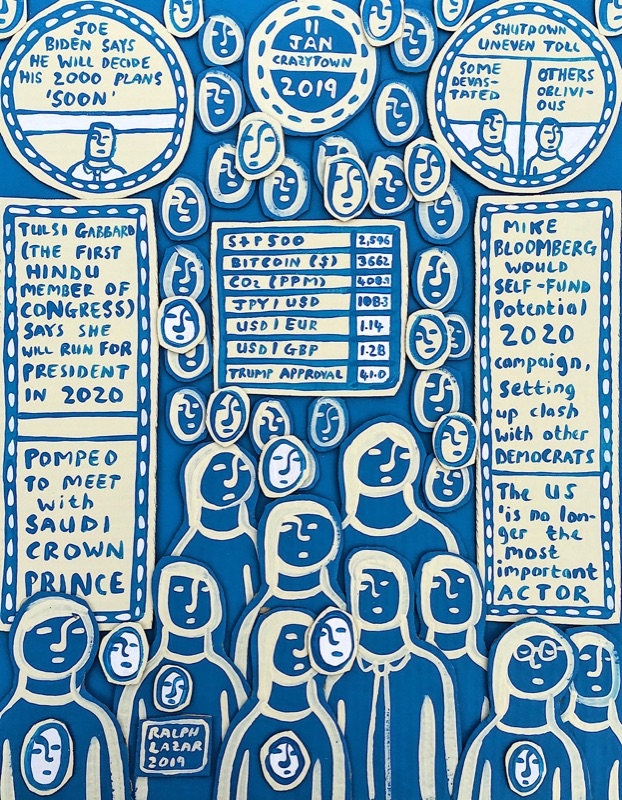 JOE
BIDEN SAYS
HE WILL DECIDE
HIS 2000 PLANS
'SOON'
11
JAN
CRAZYTOWN
2019
SHUTDOWN
UNEVEN TOLL
SOME
DEVAS-
TATED
OTHERS
OBLIVI-
OUS
TULSI GABBARD
(THE FIRST
HINDU
MEMBER OF
CONGRESS)
SAYS SHE
WILL RUN FOR
PRESIDENT
IN 2020
POMPEO
TO MEET
with
SAUDI
CROWN
PRINCE
S+P 500 2,596
BITCOIN ($) 3662
CO2 (PPM)
JPY / USD 108.3
USD / EUR 1.14
USD / GBP 1.28
TRUMP APPROVAL 41.0
MIKE
BLOOMBERG
WOULD
SELF-FUND
Potential
2020
campaign,
setting
up clash
with other
DEMOCRATS
The US
'is no lon-
ger the
most
important
ACTOR
RALPH
LAZAR
2019